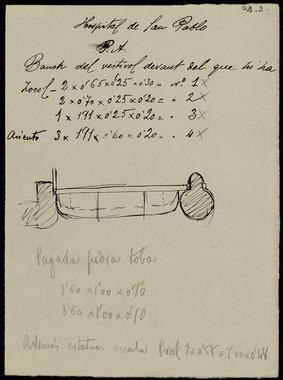 9A.2.
Hospital de San Pablo
P.A.
Banch del vestivol devant del que hi ha
Zocol - 2 x 0'65 x 0'25 x 0'30 = nº 1 X
2 x 0'70 x 0'25 x 0'20 = " 2 X
1 x 1'11 x 0'25 x 0'20 = " 3 X
Asiento 3 x 1'11 x 0'60 x 0'20 = " 4 X
Pagada pedra toba
3'60 x 1'00 x 0'70
3'60 x 1'00 x 0'70
Ademés estatua escala Pral 2 x 0'58 x 2'00 x 0'48